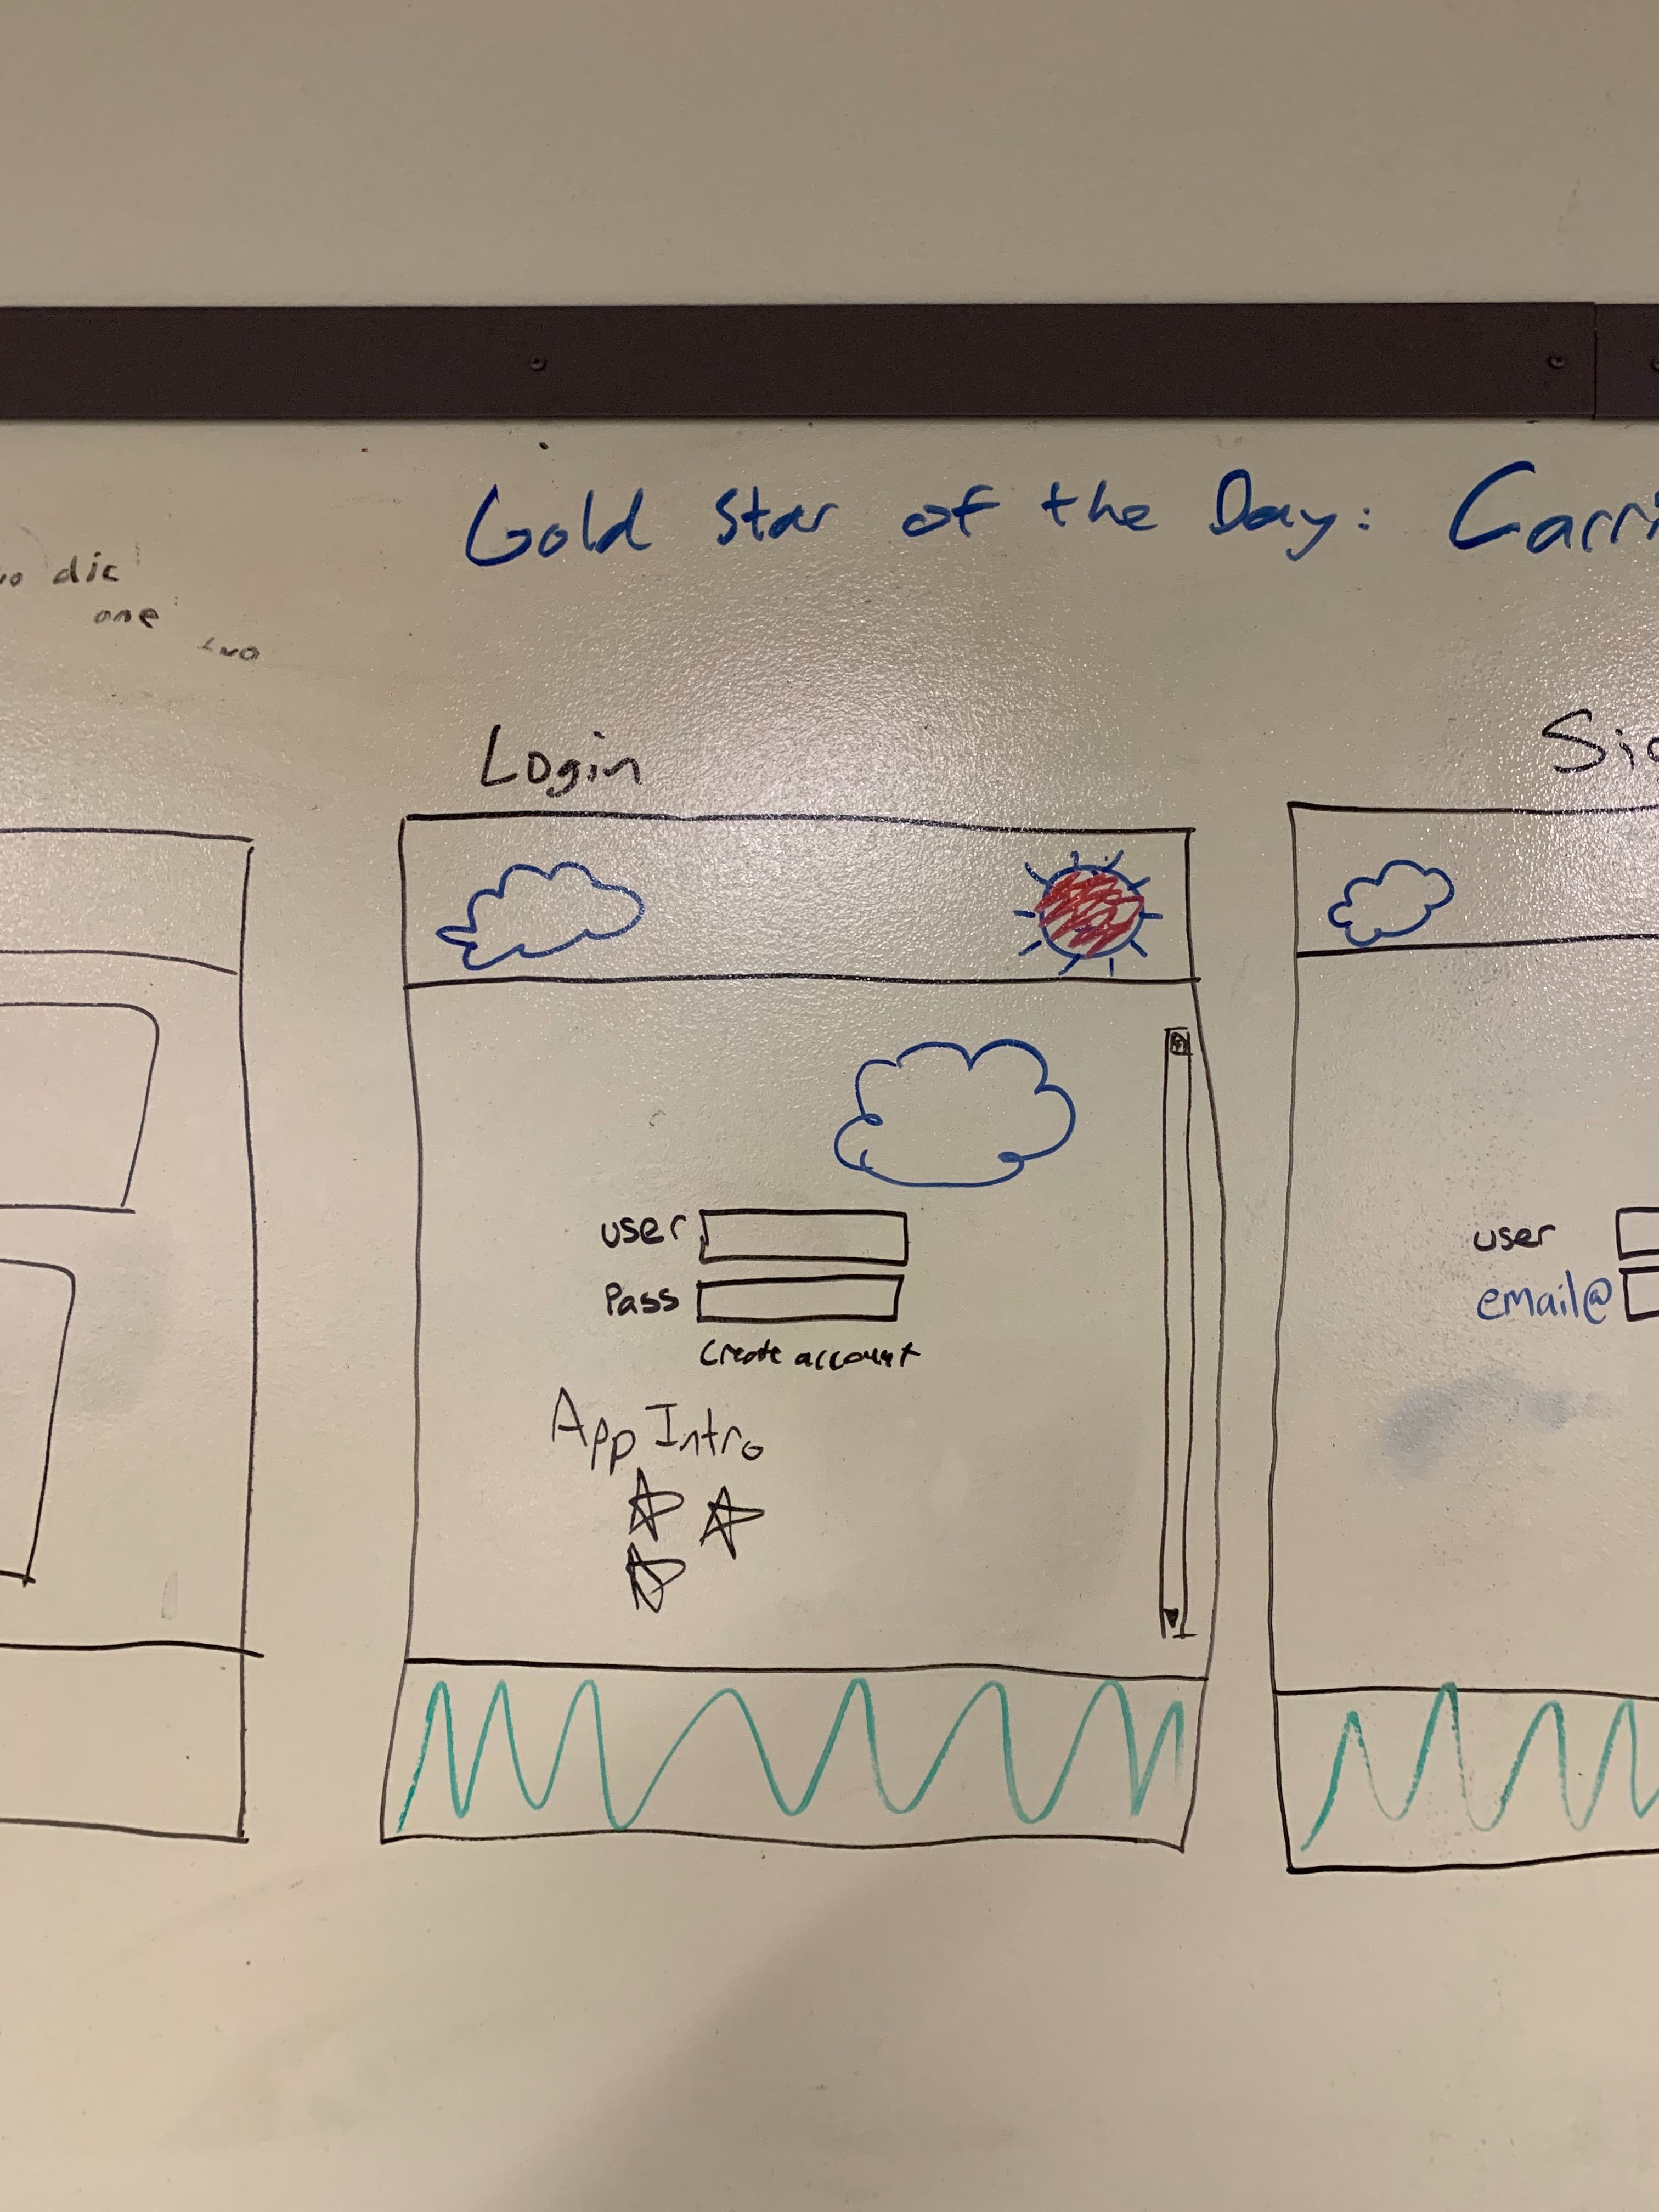 Gold Star of the Day: Carri
dic
one
two
Login
Sig
user
Pass
Create account
App Intro
user
email@